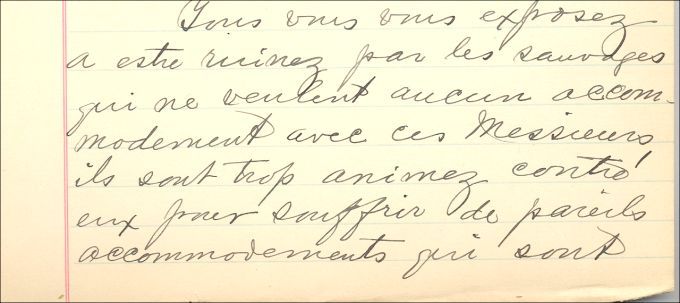 Vous vous vous exposez
a estre ruinez par les sauvages
qui ne veulent aucun accom-
modement avec ces Messieurs
ils sont trop animez contre
eux pour souffrir de pareils
accommodements qui sont